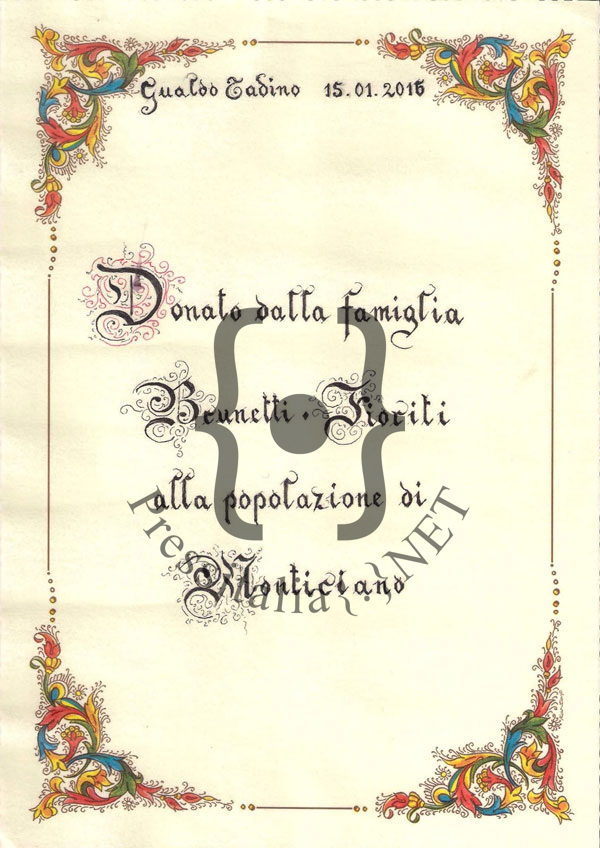 Gualdo Tadino 15.01.2016
Donato dalla famiglia
Brunetti · Fioriti
alla popolazione di
Monticiano
PressItalia{·}.NET